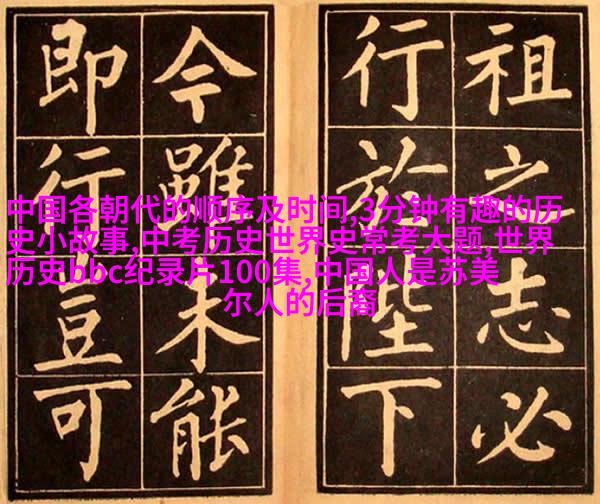 祖之志必
行於陛下
今雖未能
即行豈可
中国各朝代的顺序及时间,3分钟有趣的历
史小故事,中考历史世界史常考大题,世界
历史bbc纪录片100集,中国人是苏美
尔人的后裔